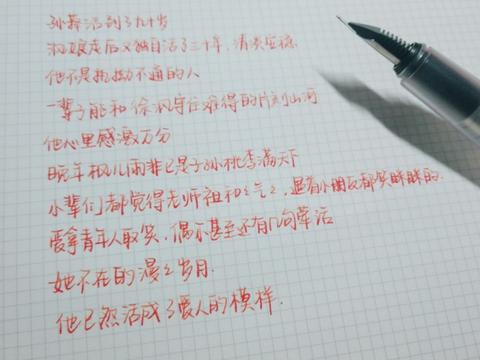 孙葬活到了九十岁
枫娘走后又独自活了三十年,清淡安稳
他不是执拗不通的人
一辈子能和徐枫守住难得的片刻山河
他心里感激万分
晚年枫儿雨非已是子孙桃李满天下
小辈们都觉得老师祖和々气々,遇着小朋友都笑眯眯的.
爱拿青年人取笑,偶尔甚至还有几句荤话
她不在的漫々岁月.
他已然活成了爱人的模样.